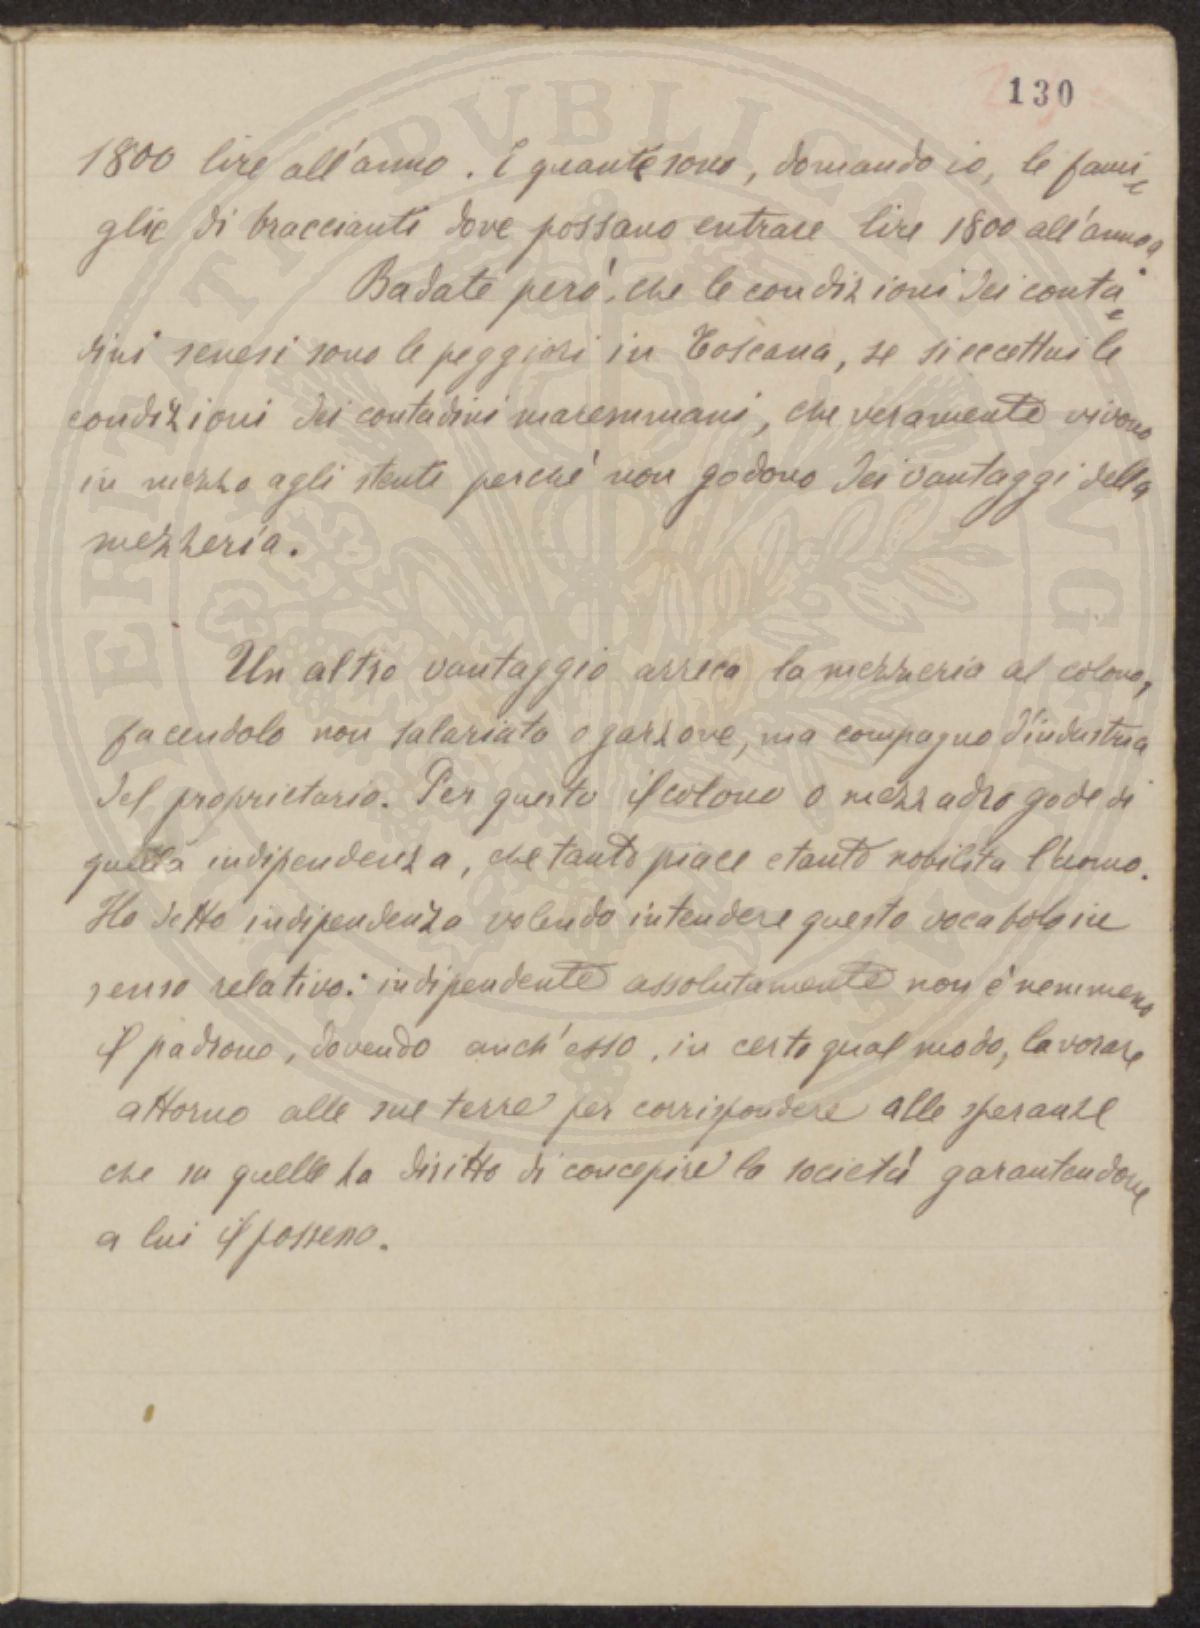 130
1800 lire all'anno. E quante sono, domando io, le fami=
glie di braccianti dove possano entrare lire 1800 all'anno?
Badate però, che le condizioni dei conta=
dini senesi sono le peggiori in Toscana, se si eccettui le
condizioni dei contadini maremmani, che veramente vivono
in mezzo agli stenti perchè non godono dei vantaggi della
mezzeria.
Un altro vantaggio arreca la mezzeria al colono,
facendolo non salariato o garzone, ma compagno d'industria
del proprietario. Per questo il colono o mezzadro gode di
quella indipendenza, che tanto piace e tanto nobilita l'uomo.
Ho detto indipendenza volendo intendere questo vocabolo in
senso relativo: indipendente assolutamente non è nemmeno
il padrone, dovendo anch'esso, in certo qual modo, lavorare
attorno alle sue terre per corrispondere alle speranze
che su quelle ha diritto di concepire la società garantendone
a lui il possesso.